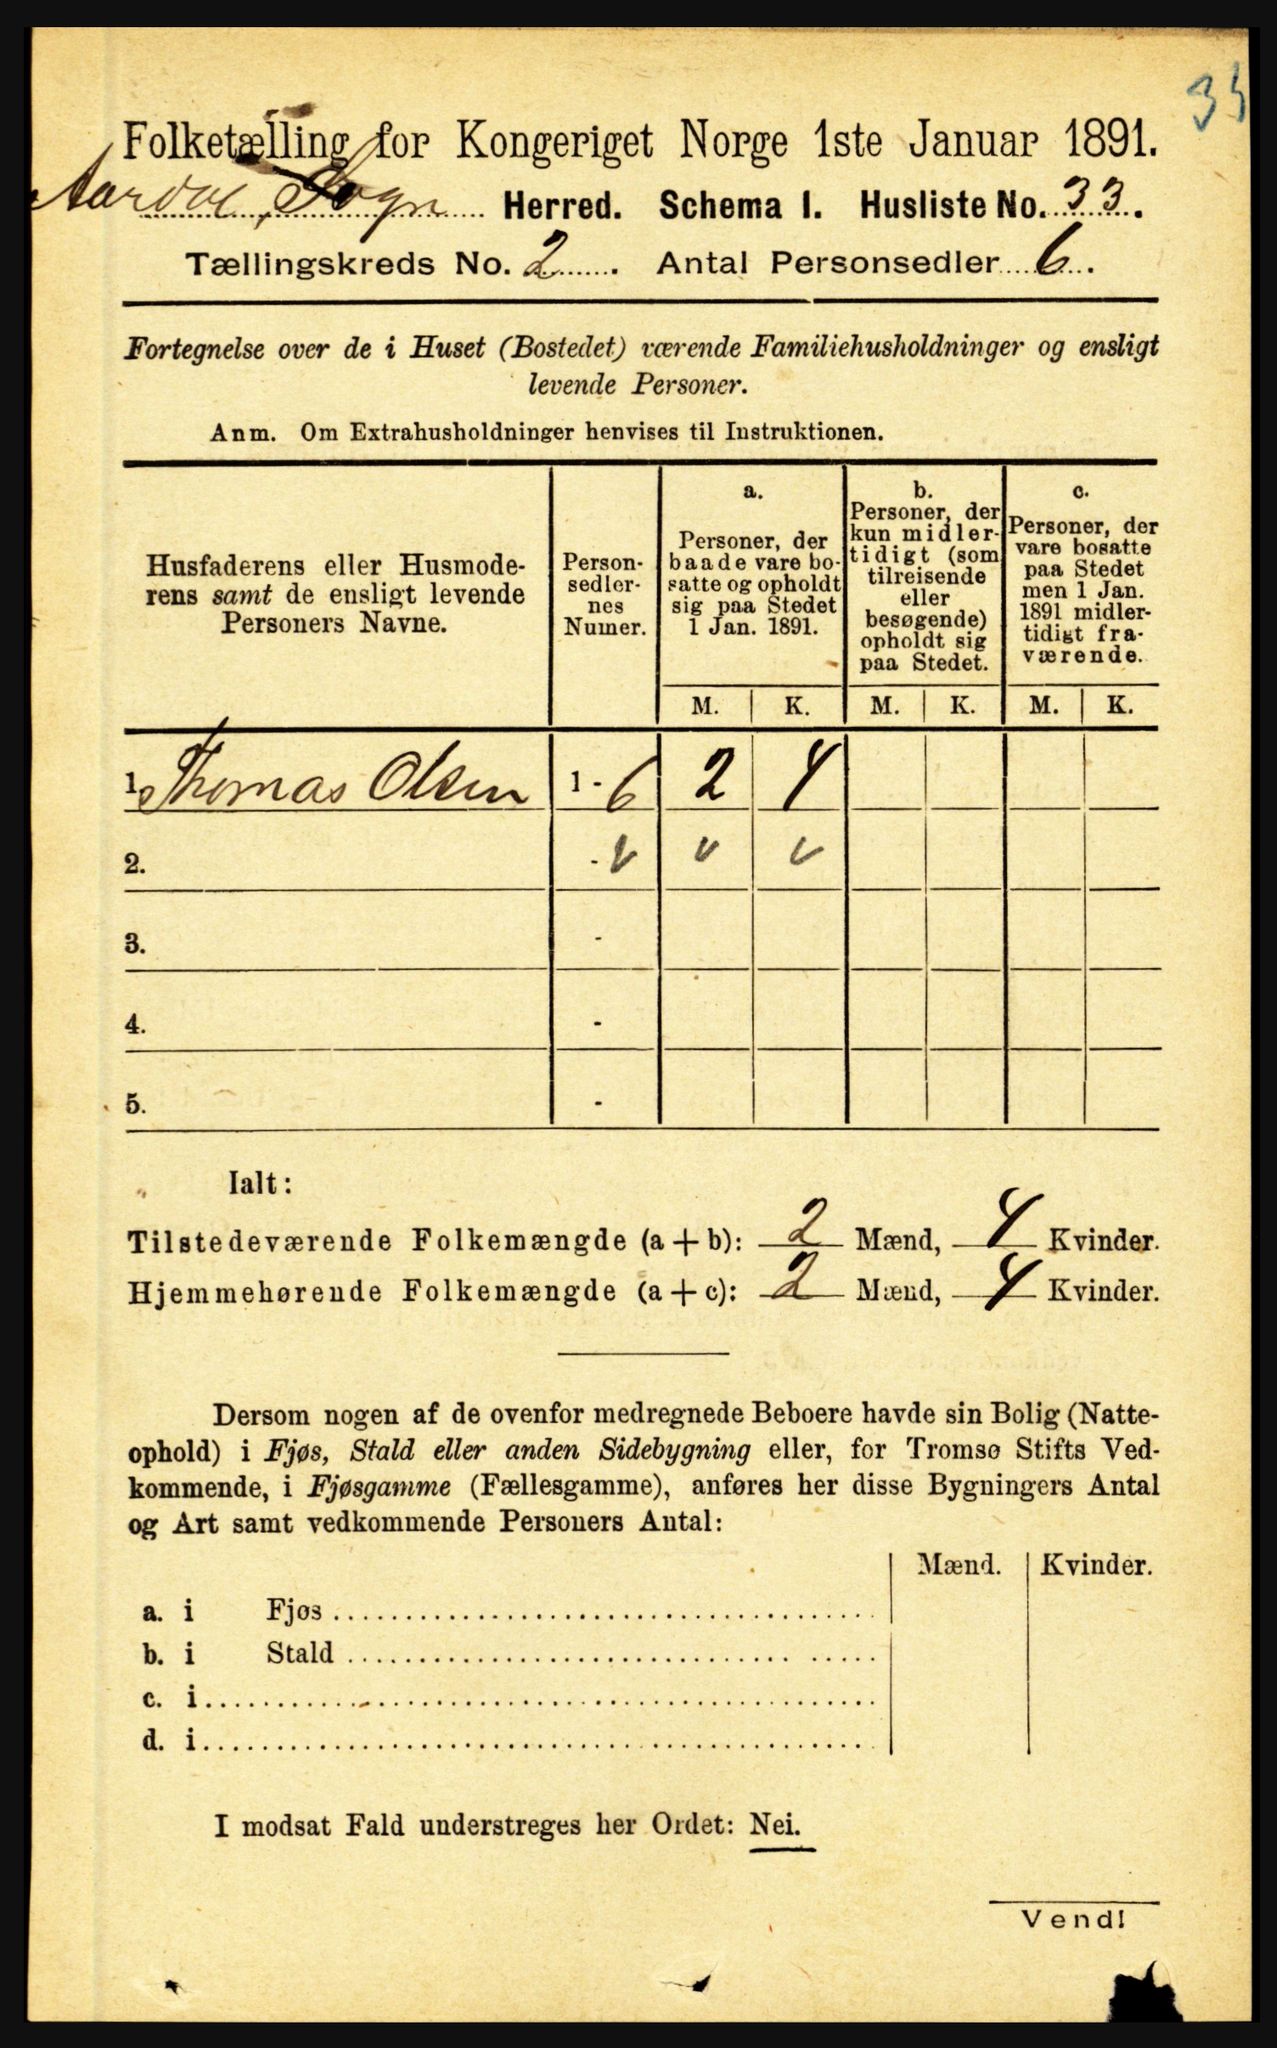 Folketælling for Kongeriget Norge 1ste Januar 1891.
Aardal, Sogn Herred. Schema I. Husliste No. 33.
Tællingskreds No. 2. Antal Personsedler 6.
Fortegnelse over de i Huset (Bostedet) værende Familiehusholdninger og ensligt
levende Personer.
Anm. Om Extrahusholdninger henvises til Instruktionen.
Husfaderens eller Husmode-
rens samt de ensligt levende
Personers Navne.
Person-
sedler-
nes
Numer.
a.
Personer, der
baade vare bo-
satte og opholdt
sig paa Stedet
1 Jan. 1891.
b.
Personer, der
kun midler-
tidigt (som
tilreisende
eller
besøgende)
opholdt sig
paa Stedet.
c.
Personer, der
vare bosatte
paa Stedet
men 1 Jan.
1891 midler-
tidigt fra-
værende.
M. K. M. K. M. K.
1. Thomas Olsen 1 - 6 2 4
2. -
3. -
4. -
5. -
Ialt:
Tilstedeværende Folkemængde (a + b): 2 Mænd, 4 Kvinder.
Hjemmehørende Folkemængde (a + c): 2 Mænd, 4 Kvinder.
Dersom nogen af de ovenfor medregnede Beboere havde sin Bolig (Natte-
ophold) i Fjøs, Stald eller anden Sidebygning eller, for Tromsø Stifts Ved-
kommende, i Fjøsgamme (Fællesgamme), anføres her disse Bygningers Antal
og Art samt vedkommende Personers Antal:
Mænd. Kvinder.
a. i Fjøs
b. i Stald
c. i
d. i
I modsat Fald understreges her Ordet: Nei.
Vend!